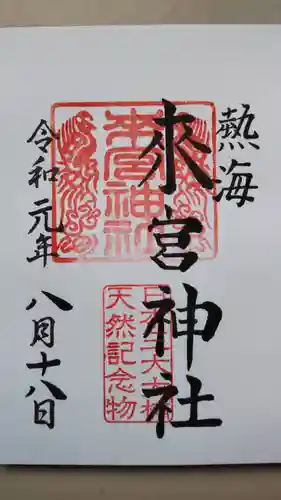 熱海
來宮神社
來宮神社
日本三大大楠
天然記念物
令和元年
八月十八日